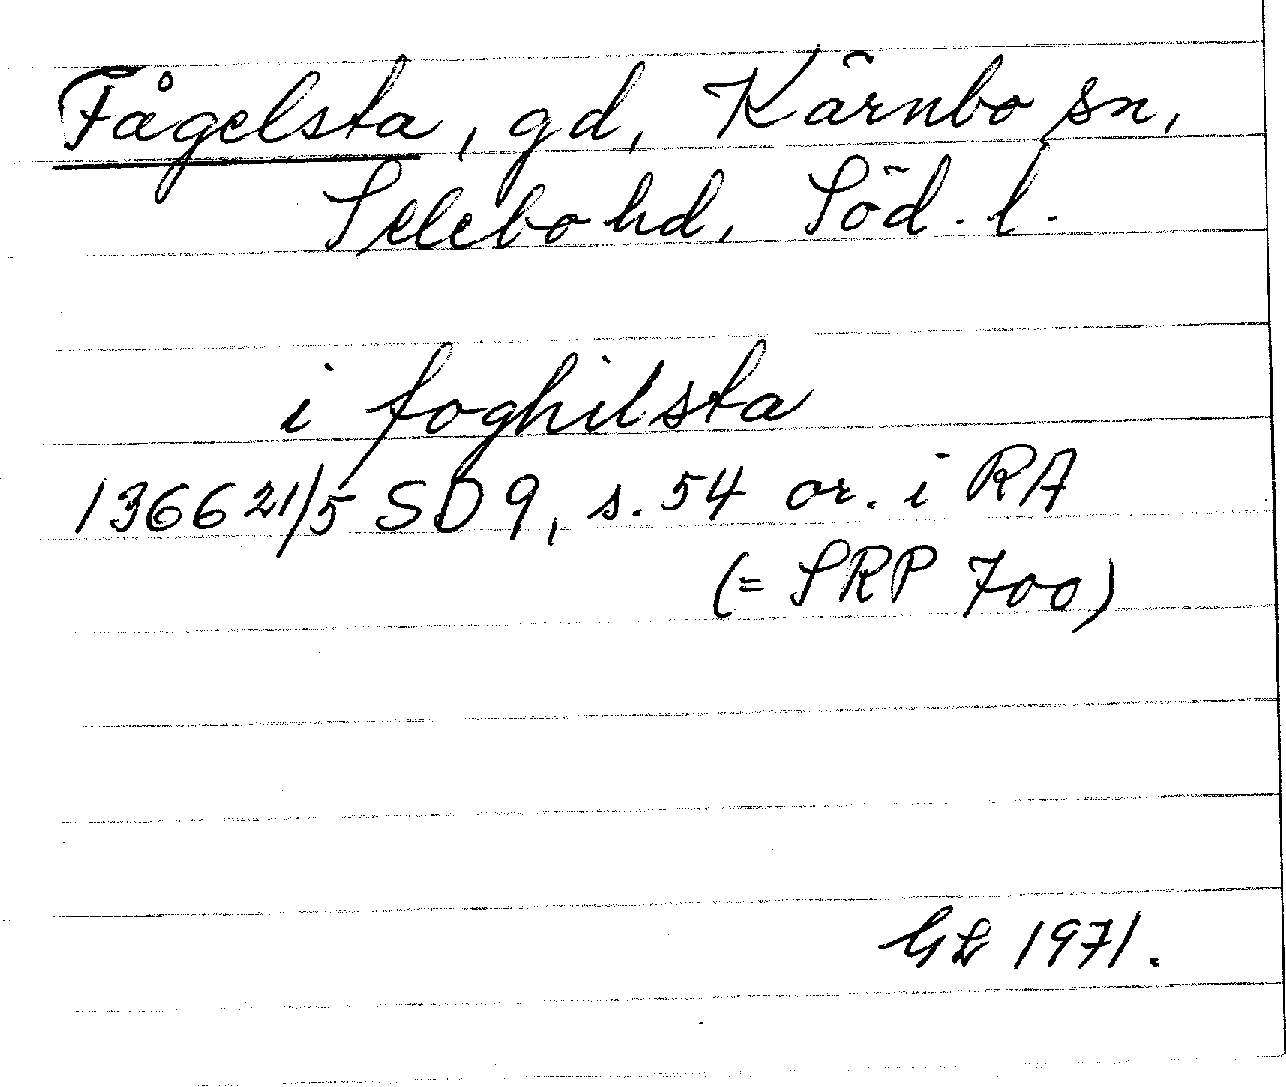 Fågelsta, gd, Kärnbo sn,
Selebo hd, Söd. l.
i foghilsta
1366 21/5 SD 9, s. 54 or. i RA
(= SRP 700)
1971.